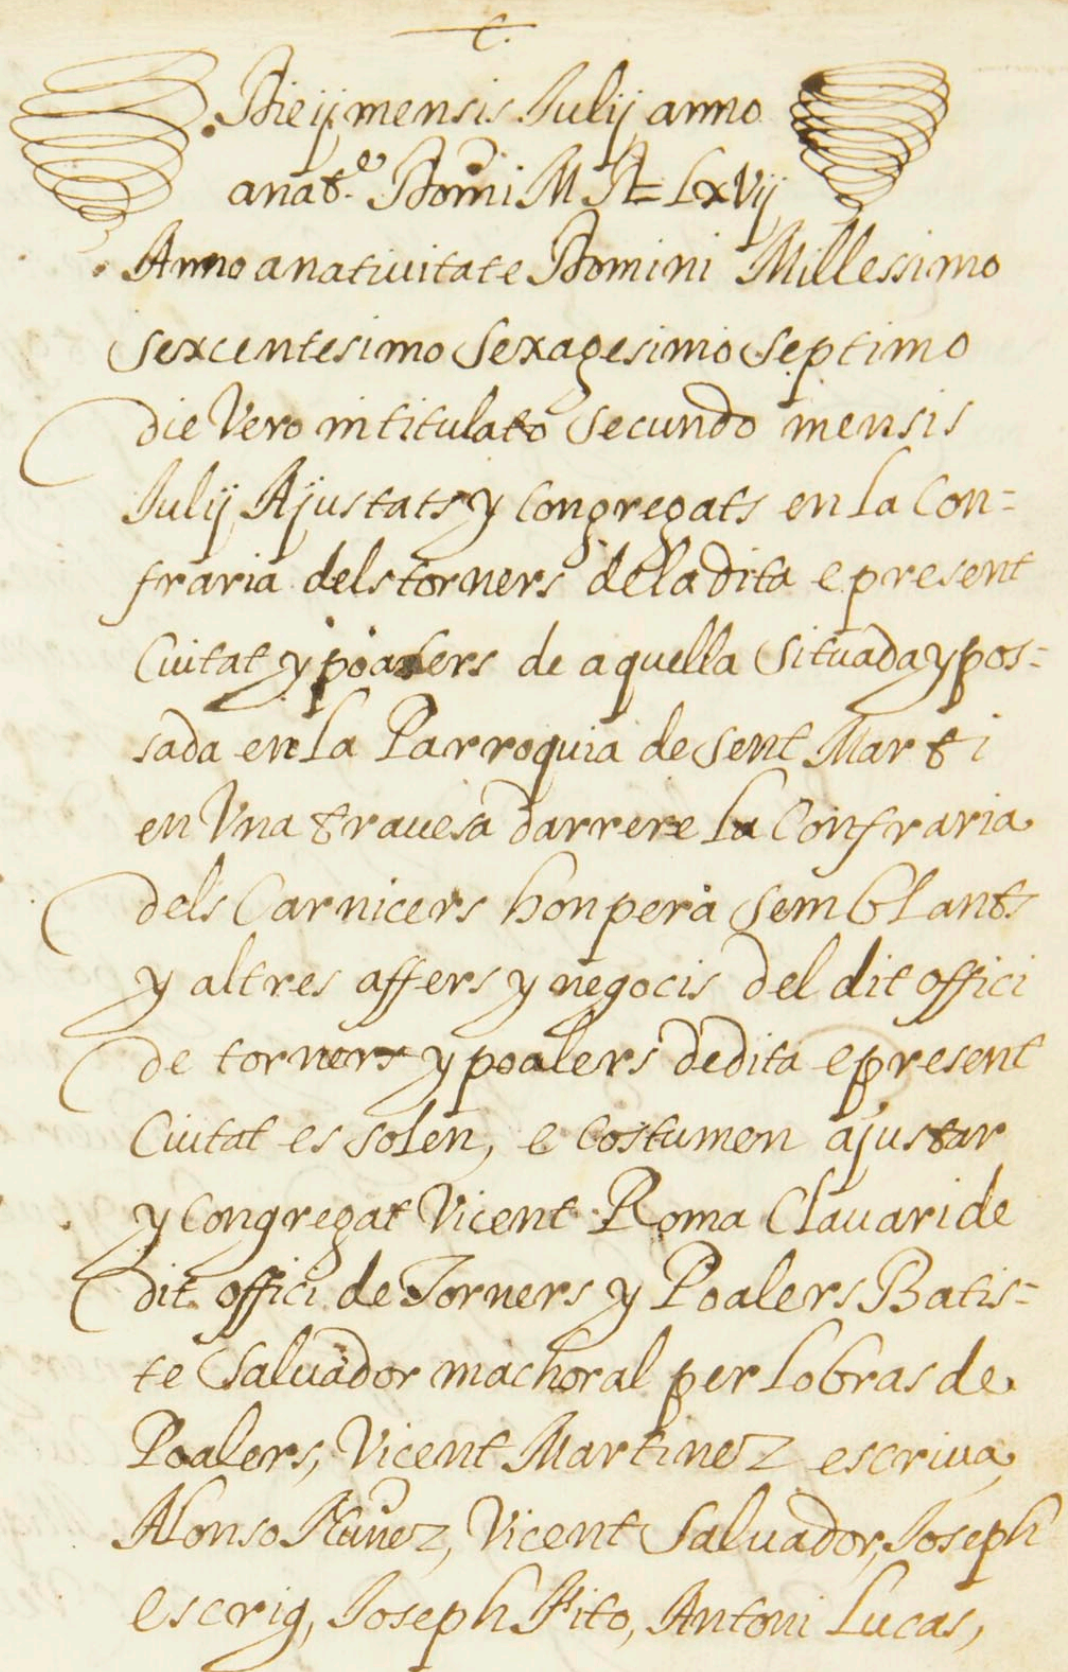 Die ij mensis Julij anno
a nat.e Domi M DC LxVij
Anno a natiuitate Domini Millessimo
sexcentesimo Sexagesimo Septimo
die Vero intitulato Secundo mensis
Julij Ajustats y Congregats en la Con=
fraria dels torners de la dita e present
Ciutat y poalers de aquella Situada y pos=
sada en la Parroquia de Sent Marti
en Vna trauesa darrere la Confraria
dels Carnicers hon pera Semblants
y altres affers y negocis del dit offici
de torners y poalers de dita e present
Ciutat es solen, e costumen ajustar
y Congregar Vicent Roma Clauari de
dit offici de Torners y Poalers Batis=
te Saluador machoral per lo bras de
Poalers, Vicent Martinez escriua
Alonso Nunez, Vicent Saluador, Joseph
escrig, Joseph Fito, Antoni Lucas,